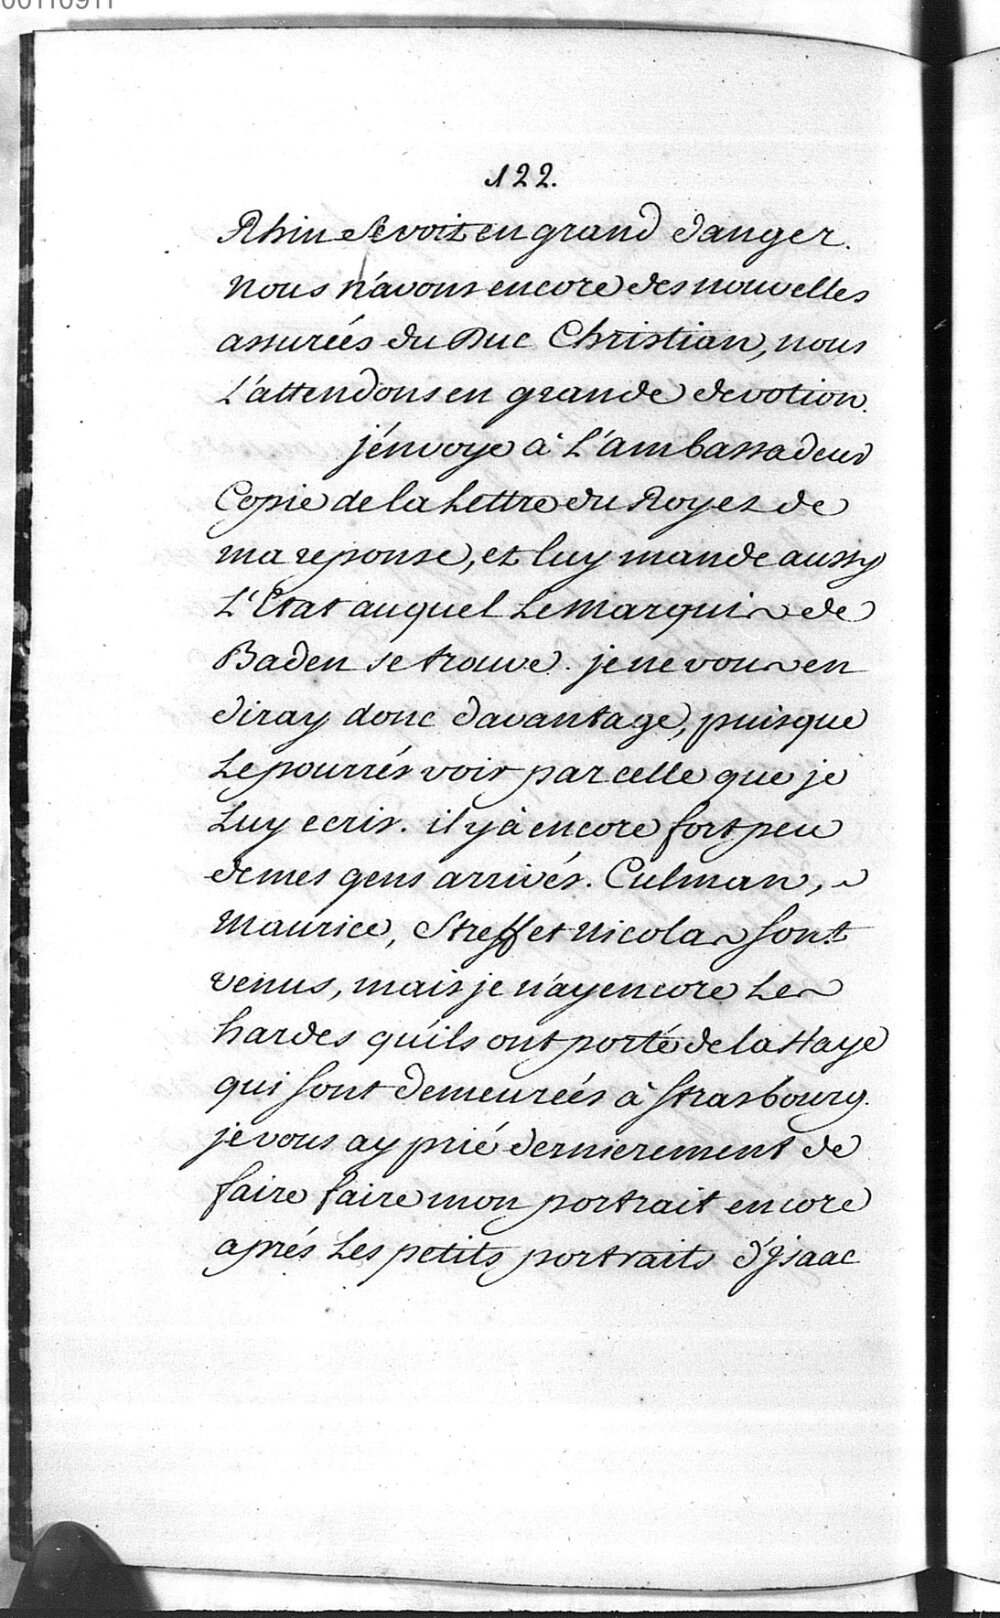 00110911
122.
Rhin se voit en grand danger.
Nous n'avons encore des nouvelles
assurées du Duc Christian, nous
L'attendons en grande devotion.
j'envoye à L'ambassadeur
Copie de la Lettre du Roy et de
ma reponse, et luy mande aussy
L'Etat auquel Le Marquis de
Baden se trouve. je ne vous en
diray donc davantage, puisque
Le pourrés voir par celle que je
Luy ecris. il y à encore fort peu
de mes gens arrivés. Culman,
Maurice, Streff et Nicolas sont
venus, mais je n'ay encore Les
hardes qu'ils ont porté de la Haye
qui sont demeurées à Strasbourg.
je vous ay prié dernierement de
faire faire mon portrait encore
aprés Les petits portraits d'Isaac